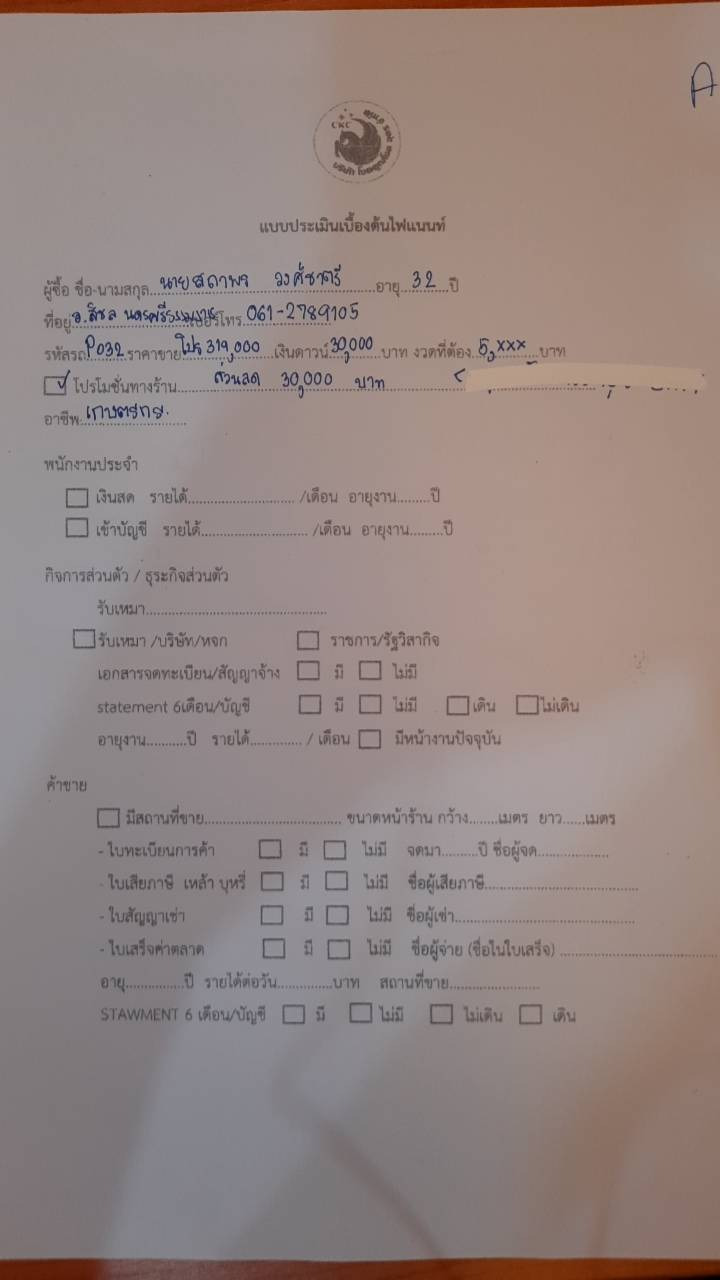 A
CKC
แบบประเมินเบื้องต้นไฟแนนท์
ผู้ซื้อ ชื่อ-นามสกุล นายสถาพร วงศ์ชาตรี อายุ 32 ปี
ที่อยู่ อ.สิชล นครศรีธรรมราช เบอร์โทร. 061-2789105
รหัสรถ P032 ราคาขาย โปร 319,000 เงินดาวน์ 30,000 บาท งวดที่ต้อง 5,xxx บาท
โปรโมชั่นทางร้าน ส่วนลด 30,000 บาท
อาชีพ เกษตรกร.
พนักงานประจำ
เงินสด รายได้ /เดือน อายุงาน ปี
เข้าบัญชี รายได้ /เดือน อายุงาน ปี
กิจการส่วนตัว / ธุระกิจส่วนตัว
รับเหมา
รับเหมา /บริษัท/หจก ราชการ/รัฐวิสากิจ
เอกสารจดทะเบียน/สัญญาจ้าง มี ไม่มี
statement 6เดือน/บัญชี มี ไม่มี เดิน ไม่เดิน
อายุงาน ปี รายได้ / เดือน มีหน้างานปัจจุบัน
ค้าขาย
มีสถานที่ขาย ขนาดหน้าร้าน กว้าง เมตร ยาว เมตร
- ใบทะเบียนการค้า มี ไม่มี จดมา ปี ชื่อผู้จด
- ใบเสียภาษี เหล้า บุหรี่ มี ไม่มี ชื่อผู้เสียภาษี
- ใบสัญญาเช่า มี ไม่มี ชื่อผู้เช่า
- ใบเสร็จค่าตลาด มี ไม่มี ชื่อผู้จ่าย (ชื่อในใบเสร็จ)
อายุ ปี รายได้ต่อวัน บาท สถานที่ขาย
STAWMENT 6 เดือน/บัญชี มี ไม่มี ไม่เดิน เดิน